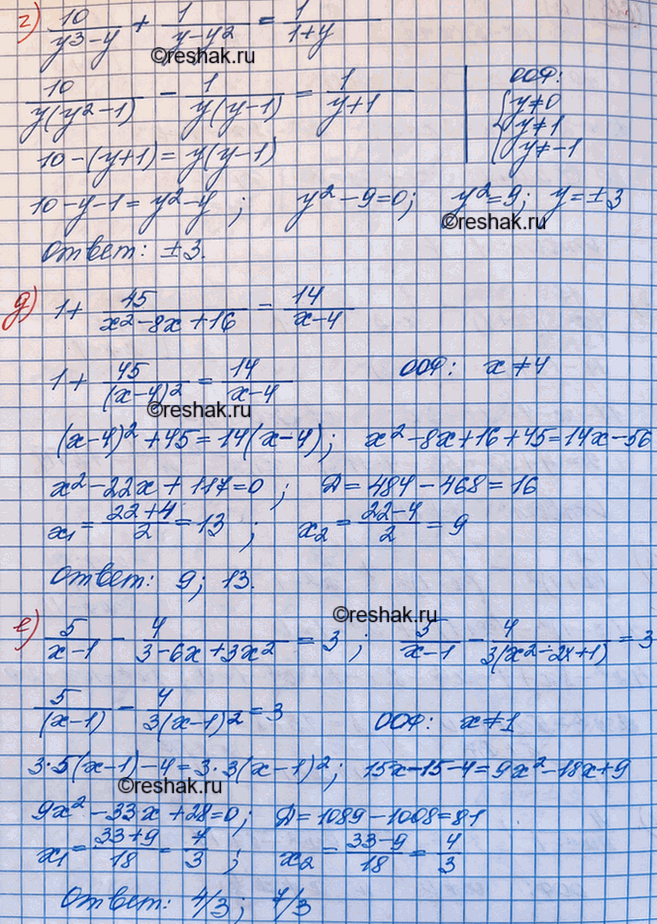 г) 10/(y³-y) + 1/(y-y²) = 1/(1+y)
©reshak.ru
10/(y(y²-1)) - 1/(y(y-1)) = 1/(y+1) | ООФ: { y≠0
y≠1
y≠-1
10-(y+1)=y(y-1)
10-y-1=y²-y ; y²-9=0; y²=9; y=±3
©reshak.ru
Ответ: ±3.
д) 1+ 45/(x²-8x+16) = 14/(x-4)
1+ 45/(x-4)² = 14/(x-4) ООФ: x≠4
©reshak.ru
(x-4)²+45=14(x-4); x²-8x+16+45=14x-56
x²-22x+117=0 ; D=484-468=16
x₁= (22+4)/2 =13 ; x₂= (22-4)/2 =9
Ответ: 9; 13.
©reshak.ru
е) 5/(x-1) - 4/(3-6x+3x²) = 3 ; 5/(x-1) - 4/(3(x²-2x+1)) =3
5/(x-1) - 4/(3(x-1)²) =3 ООФ: x≠1
3·5(x-1)-4=3·3(x-1)²; 15x-15-4=9x²-18x+9
©reshak.ru
9x²-33x+28=0; D=1089-1008=81
x₁= (33+9)/18 = 7/3 ; x₂= (33-9)/18 = 4/3
Ответ: 4/3; 7/3